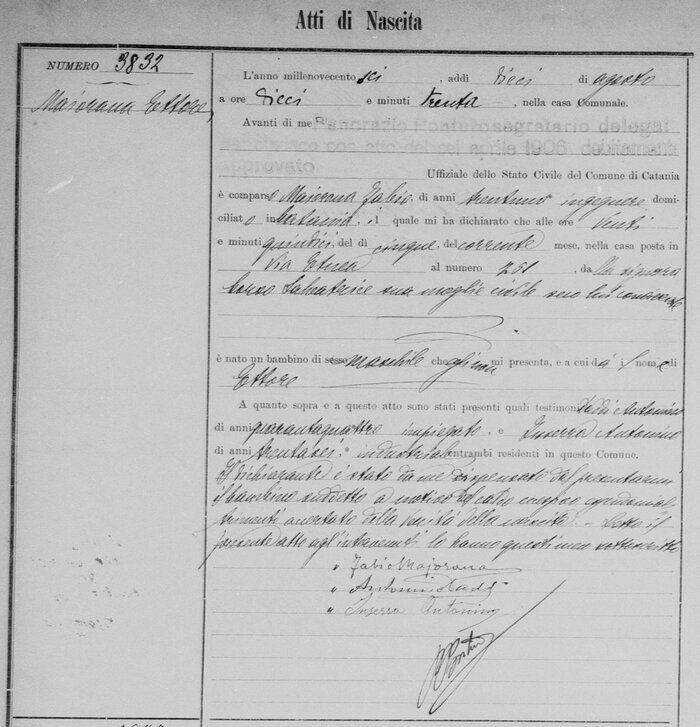 Atti di Nascita
NUMERO 3832
Majorana Ettore
L'anno millenovecento sei, addì dieci di agosto
a ore dieci e minuti trenta, nella casa Comunale.
Avanti di me
segretario delegat
con atto del sei aprile 1906 debitamente
approvato
Uffiziale dello Stato Civile del Comune di Catania
è comparso Majorana Fabio di anni trentuno ingegnere domi-
ciliato in Catania il quale mi ha dichiarato che alle ore venti
e minuti quindici del dì cinque del corrente mese, nella casa posta in
Via Etnea al numero 251, dalla signora
Corso Salvatrice sua moglie civile seco lui convivente
è nato un bambino di sesso maschile che egli non mi presenta, e a cui dà il nome di
Ettore
A quanto sopra e a questo atto sono stati presenti quali testimoni Taddi Antonino
di anni quarantaquattro impiegato e Inserra Antonino
di anni trentasei industriale entrambi residenti in questo Comune.
Il dichiarante è stato da me dispensato dal presentarmi
il bambino suddetto a motivo del
trimenti accertato della verità della nascita. Letto il
presente atto agl'intervenuti lo hanno questi meco sottoscritto
" Fabio Majorana
" Antonino Taddi
" Inserra Antonino